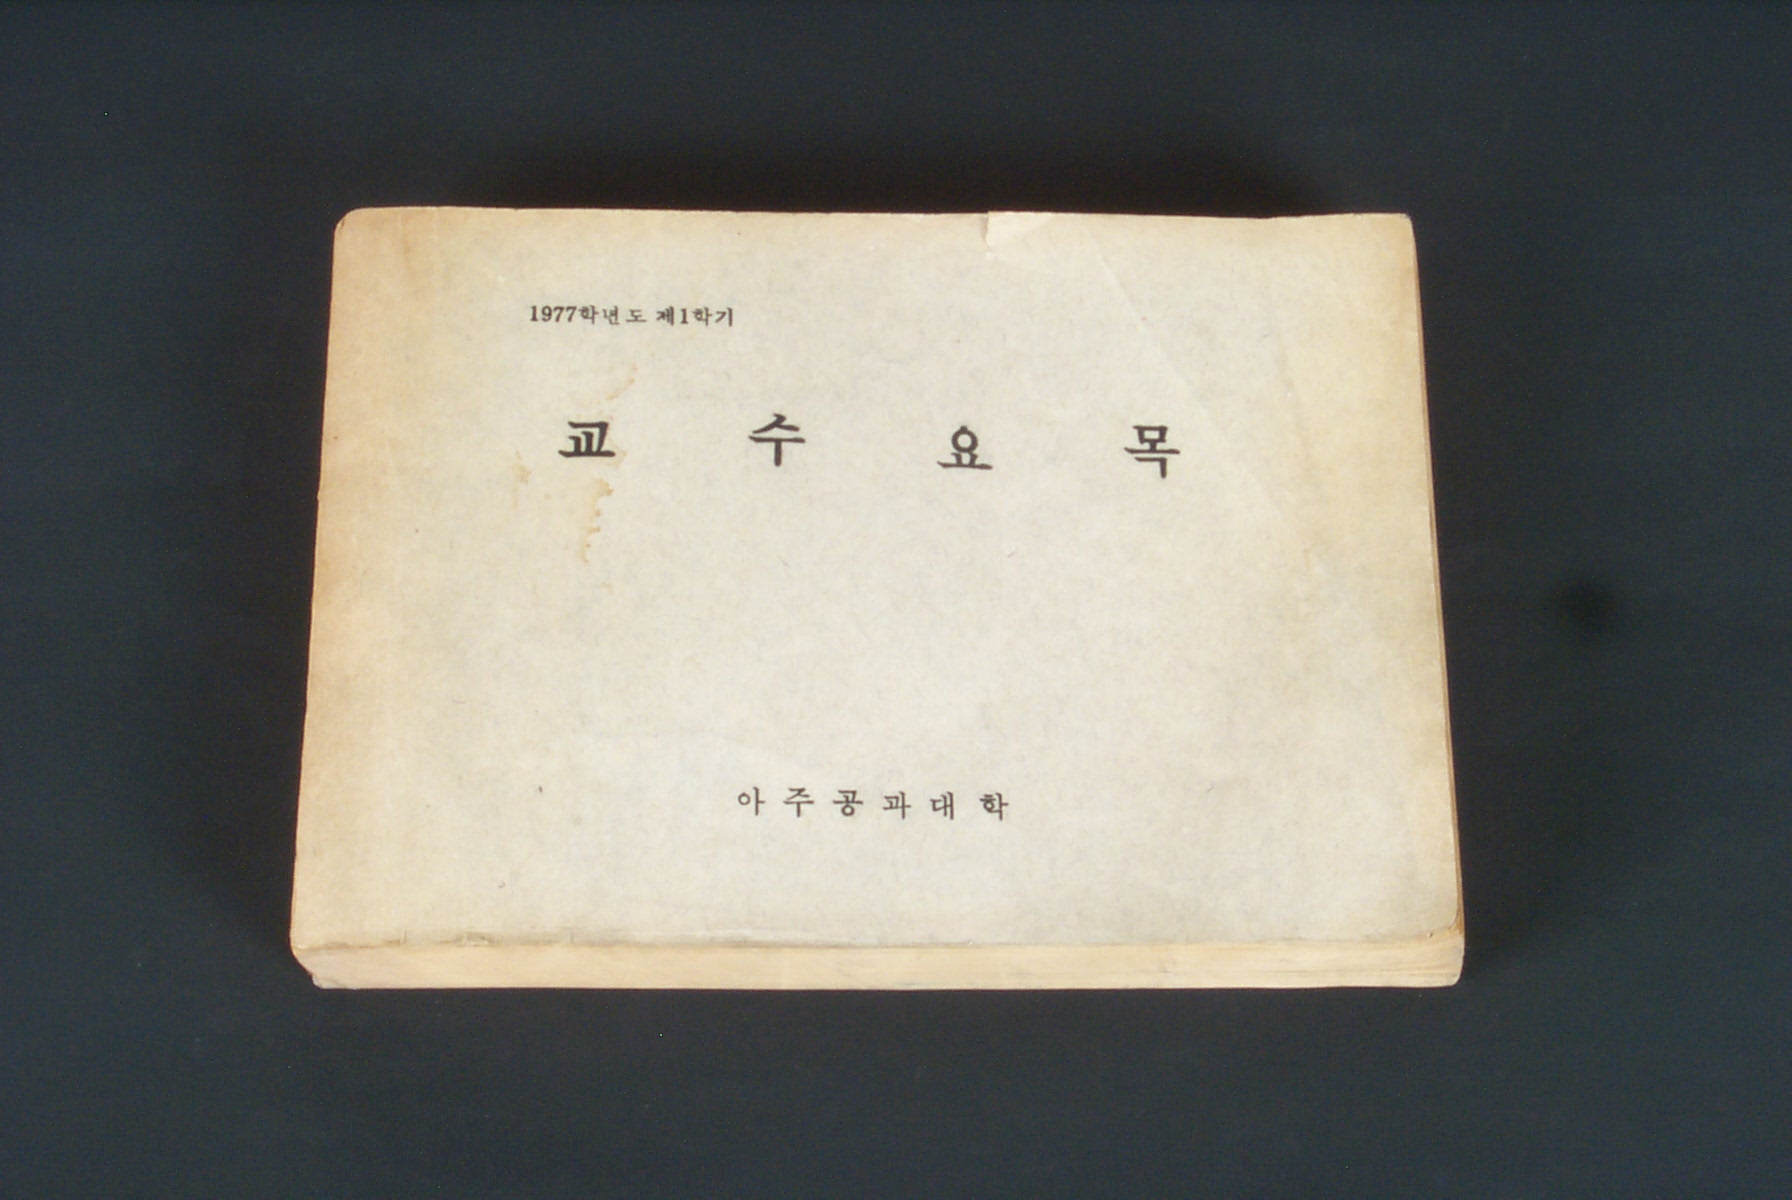 1977학년도 제1학기
교 수 요 목
아 주 공 과 대 학